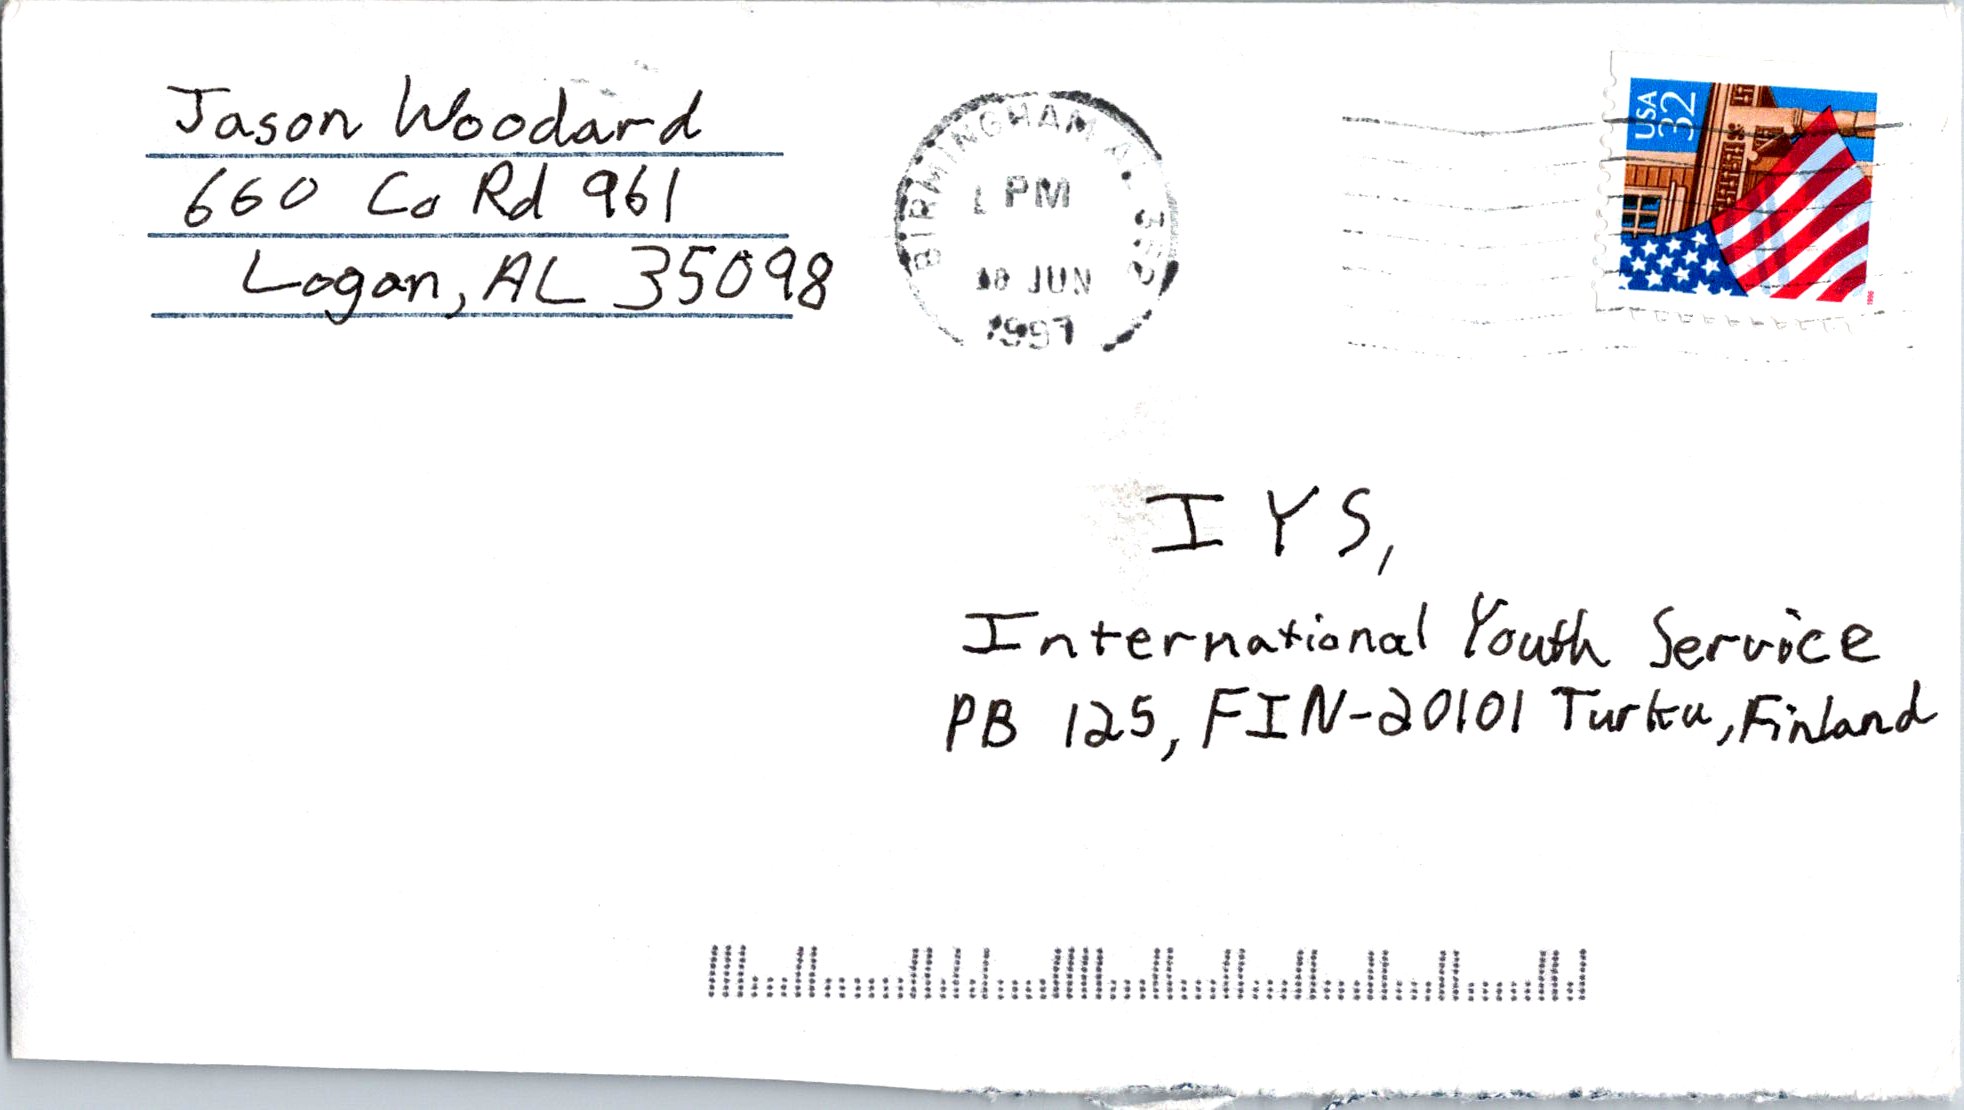 Jason Woodard
660 Co Rd 961
Logan, AL 35098
BIRMINGHAM AL 352
PM
JUN
1997
USA
32
IYS,
International Youth Service
PB 125, FIN-20101 Turku, Finland